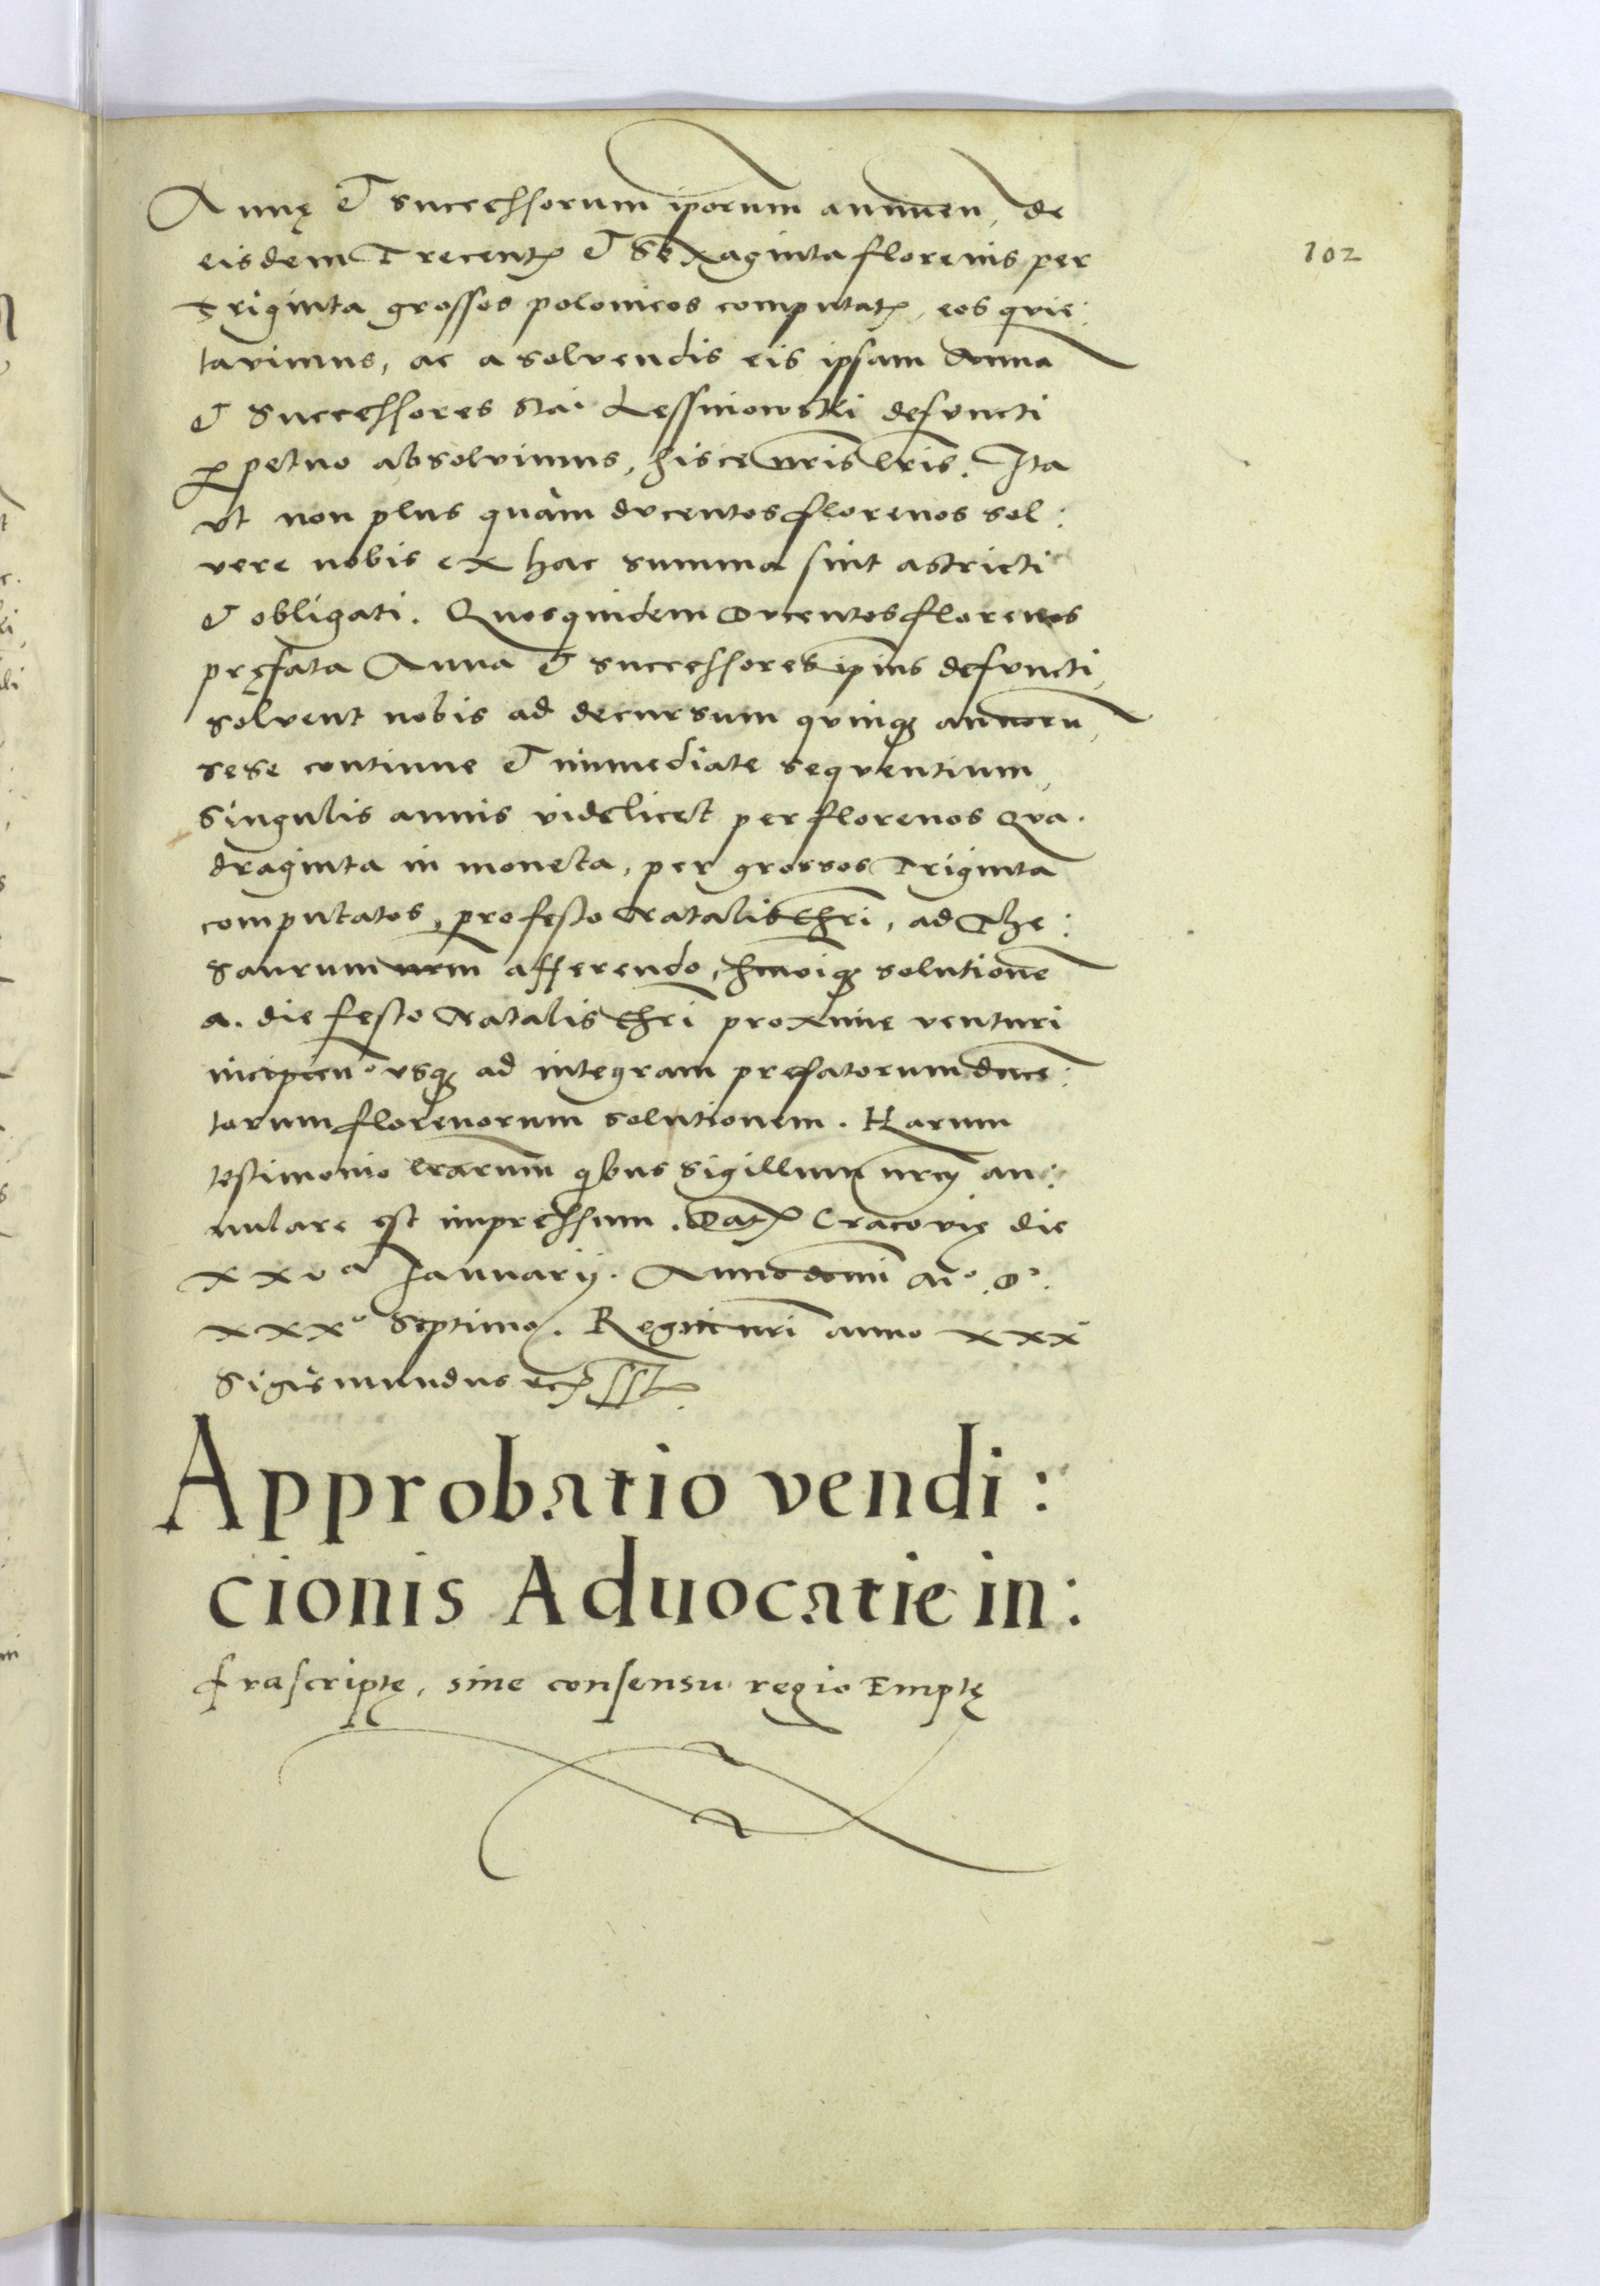 Annę et successorum ip̄orum annuen, de
102
eisdem Trecent. et Sexaginta florenis per
Triginta grossos polonicos computat., eos quie:
tavimus, ac a solvendis eis ipsam Anna
et Successores Sta. Lessniowski defuncti
ꝑpetuo absolvimus, hisce nr̄is lr̄is. Ita
ut non plus quàm ducentos florenos sol:
vere nobis ex hac summa sint astricti
et obligati. Quosquidem Ducentos florenos
pręfata Anna et successores ip̄ius defuncti,
solvent nobis ad decursum quinqꝫ annorū,
sese continue et immediate sequentium,
Singulis annis videlicet per florenos Qua.
draginta in moneta, per grossos Triginta
computatos, profesto Natalis Chr̄i, ad The:
saurum nr̄m afferendo, hmōiqꝫ solutionē
a. die festo Natalis Chr̄i proxime venturi
incipien. usqꝫ ad integram prefatorum ducē:
torum florenorum solutionem. Harum
testimonio lr̄arum qibus Sigillum nr̄m an:
nulare est impressum. Dat. Cracovię die
xxv a Ianuarij. Anno domī M°. D°.
xxx° Septimo. Regni nr̄i anno xxx
Sigismundus rex sst.
Approbatio vendi:
cionis Aduocatie in:
frascriptę, sine consensu regio Emptę